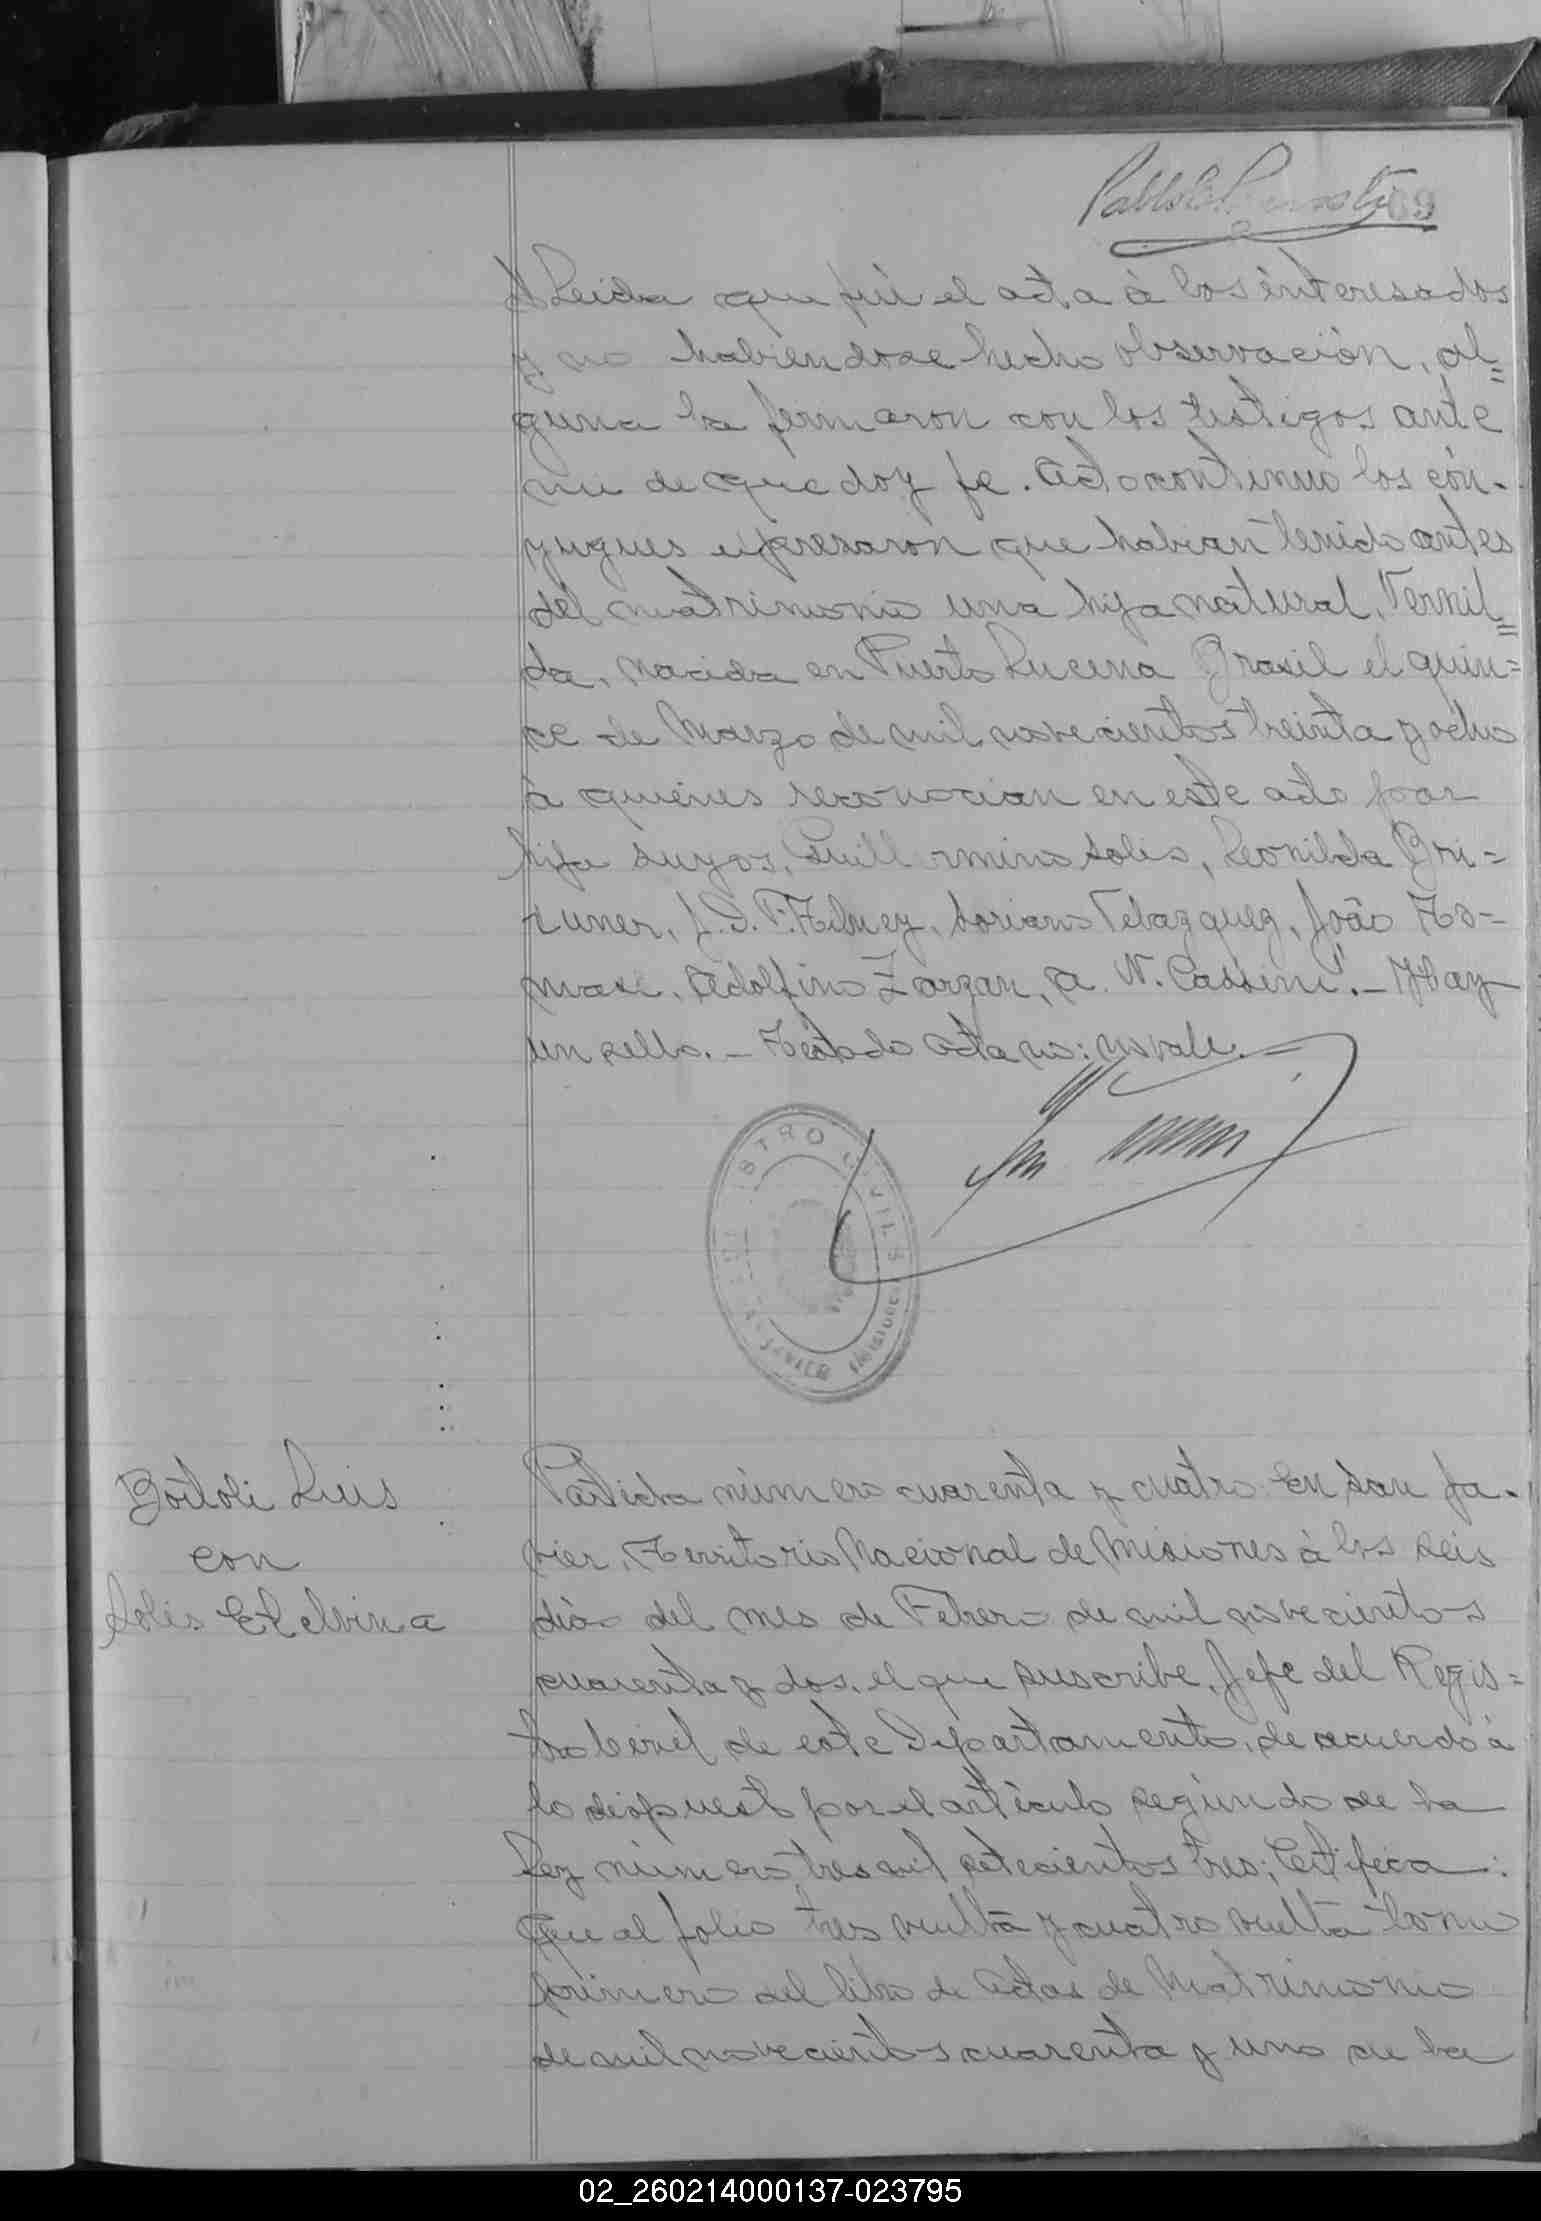 69
Leida que fué el acta á los interesados
y no habiendose hecho observación, al=
guna la firmaron con los testigos ante
mi de que doy fe. Acto continuo los cón-
yugues expresaron que habian tenido antes
del matrimonio una hija natural, Vernil=
da, nacida en Puerto Lucena Brasil el quin=
ce de Marzo de mil novecientos treinta y ocho
á quienes reconocian en este acto por
hija suyos, Guillermino Solis, Leonilda
J. G. F. Soriano Velazquez, João To=
masi, Adolfino Zarzan, A. N. Cassini.- Hay
un sello.- Testado acta no: no vale.-
Bortoli Luis
con
Solis Etelvina
Partida número cuarenta y cuatro En San Ja-
vier, Territorio Nacional de Misiones á los seis
dias del mes de Febrero de mil novecientos
cuarenta y dos, el que suscribe, Jefe del Regis=
tro Civil de este Departamento, de acuerdo á
lo dispuesto por el artículo segundo de la
Ley número tres mil setecientos tres; Certifica:
Que al folio tres vuelta y cuatro vuelta tomo
primero del libro de Actas de Matrimonio
de mil novecientos cuarenta y uno de la
02_260214000137-023795